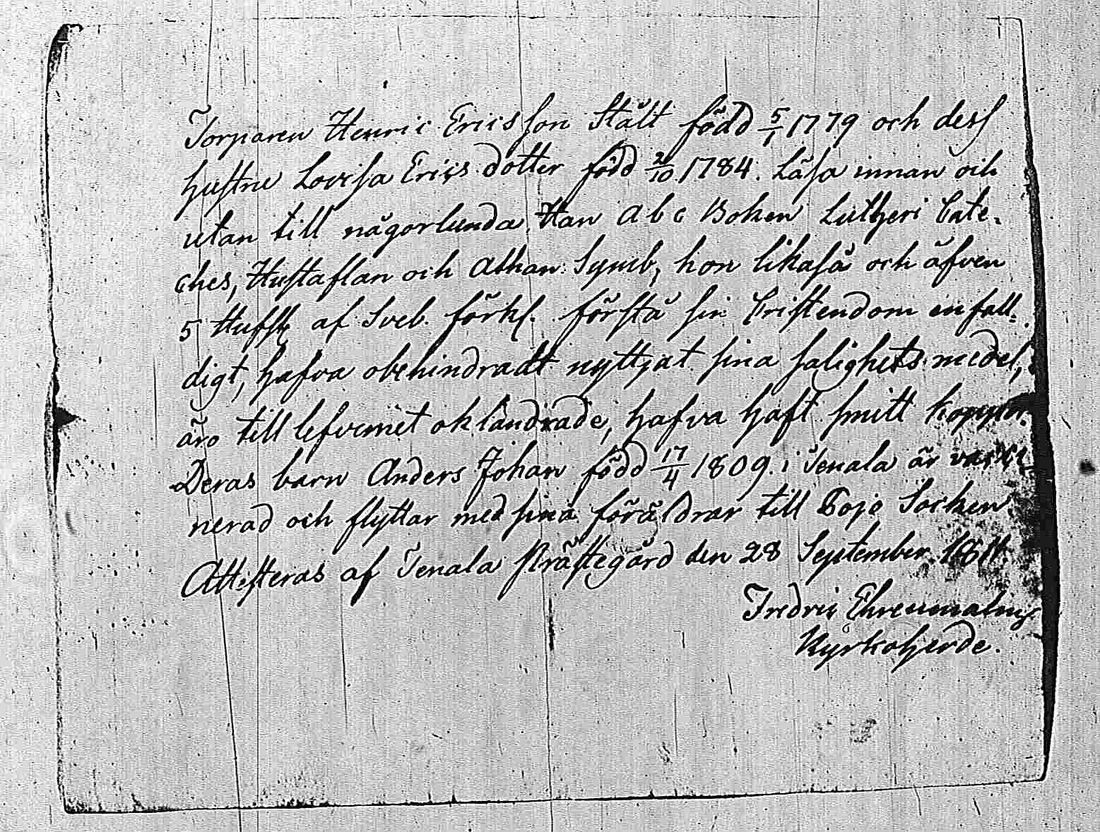 Torparen Henric Ericsson Stält född 5/1 1779 och dess
hustru Lovisa Erics dotter född 2/10 1784. Läsa innan och
utan till någorlunda Han Abc Boken Lutheri Cate-
ches, Hustaflan och Athan: Symb, hon likaså och äfven
5 Hufst af Sveb. förkl. förstå sin Cristendom enfall-
digt, hafva obehindradt nyttjat sina salighets medel,
äro till lefvernet oklandrade, hafva haft smitt koppor.
Deras barn Anders Johan född 17/4 1809. i Tenala är vacci-
nerad och flyttar med sina föräldrar till Pojo Socken
Attesteras af Tenala Prästegård den 28 September 1811
Fredric Ehrenmalm
Kyrkoherde.